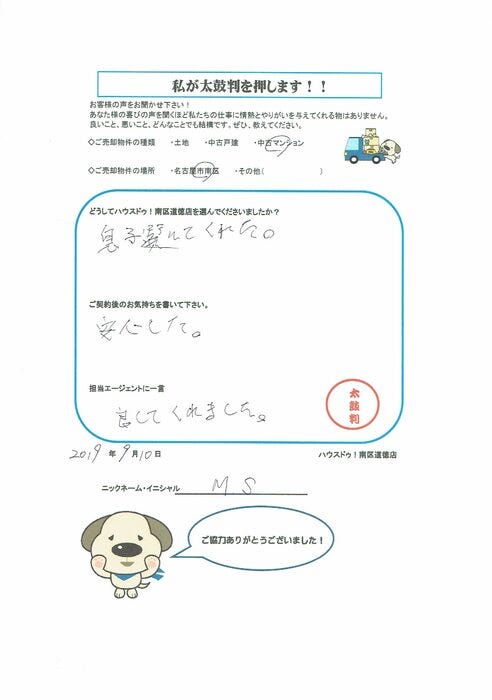 私が太鼓判を押します!!
お客様の声をお聞かせ下さい!
あなた様の喜びの声を聞くほど私たちの仕事に情熱とやりがいを与えてくれる物はありません。
良いこと、悪いこと、どんなことでも結構です。ぜひ、教えてください。
◇ご売却物件の種類 ・土地 ・中古戸建 ・中古マンション
◇ご売却物件の場所 ・名古屋市南区 ・その他( )
どうしてハウスドゥ!南区道徳店を選んでくださいましたか?
息子選んでくれた。
ご契約後のお気持ちを書いて下さい。
安心した。
担当エージェントに一言
良してくれました。
太鼓判
2019 年 9 月 10 日 ハウスドゥ!南区道徳店
ニックネーム・イニシャル M S
ご協力ありがとうございました!